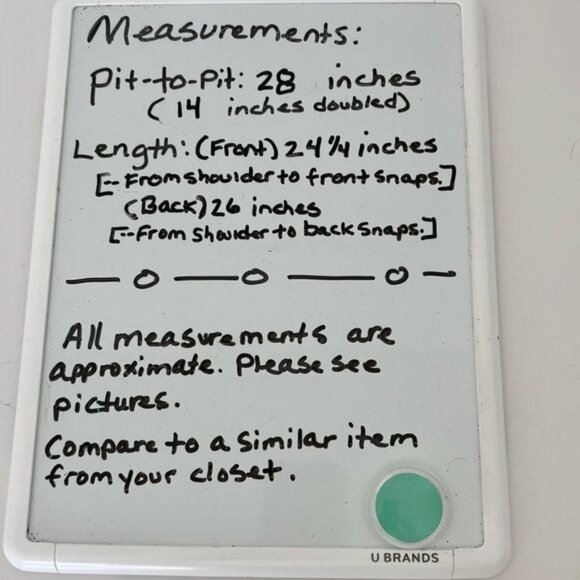 Measurements:
Pit-to-Pit: 28 inches
(14 inches doubled)
Length: (Front) 24 1/4 inches
[-- From shoulder to front snaps.]
(Back) 26 inches
[--From shoulder to back snaps.]
All measurements are
approximate. Please see
pictures.
Compare to a similar item
from your closet.
U BRANDS